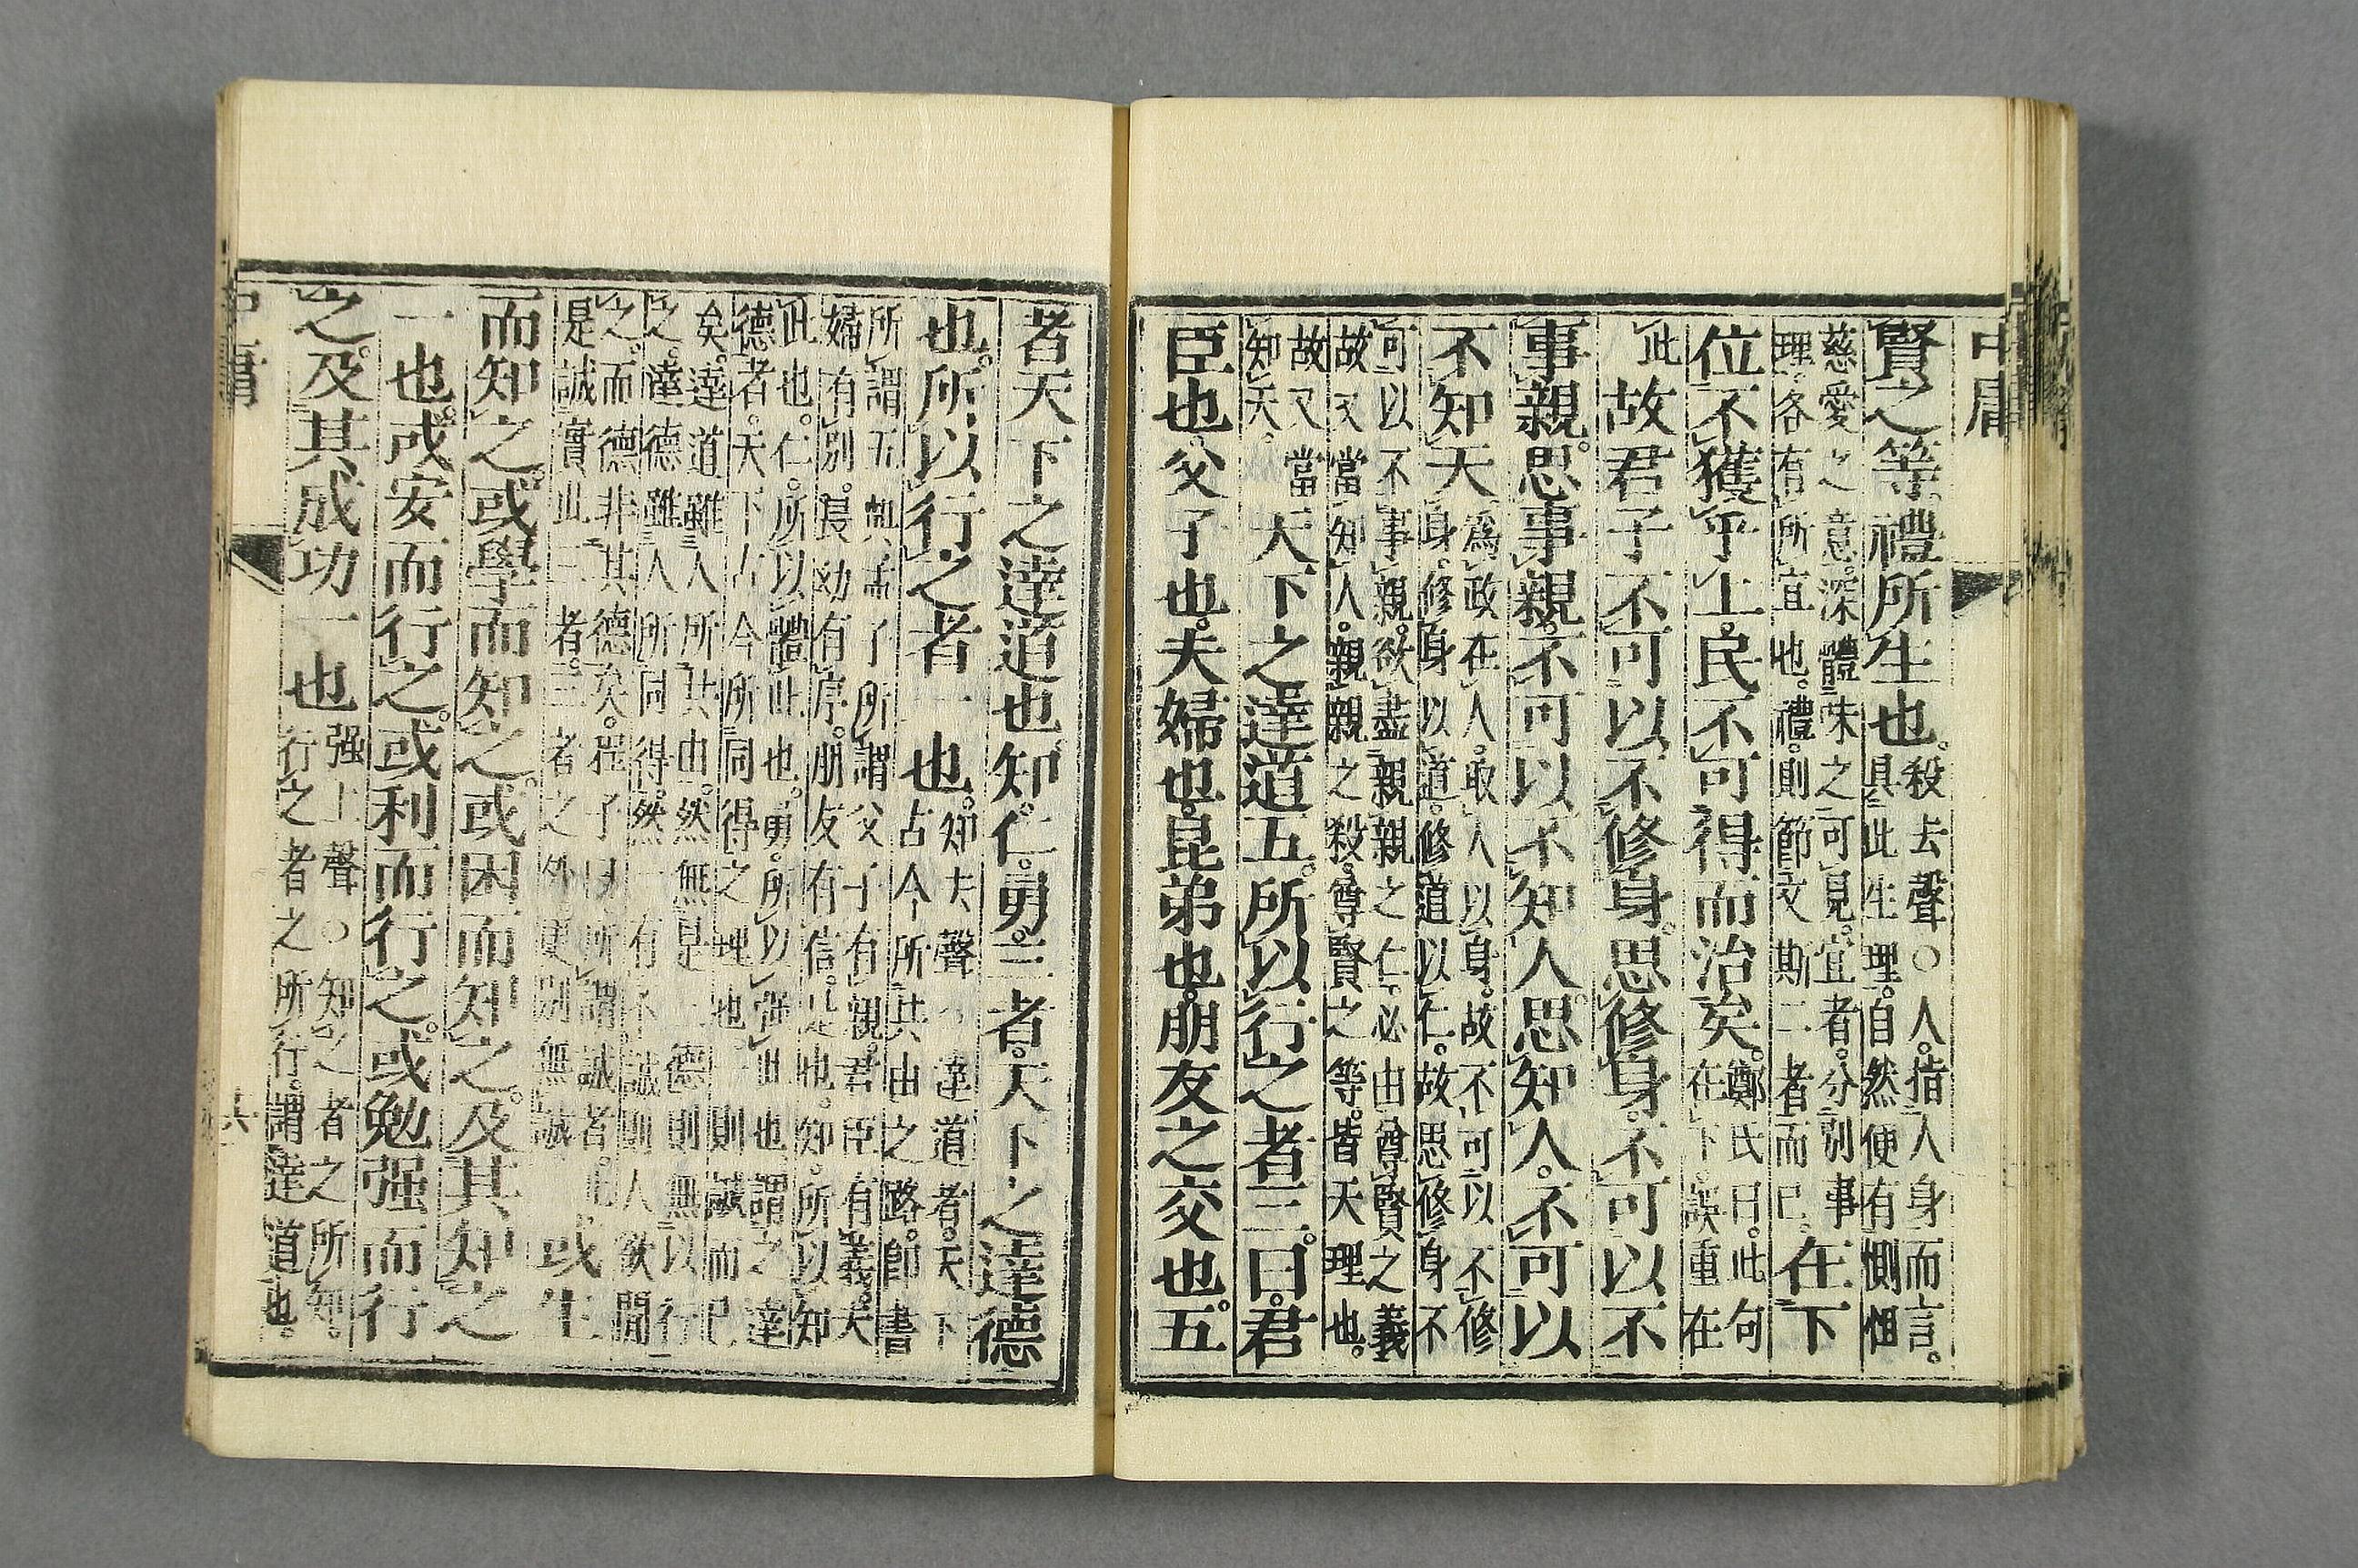 中庸
賢之等禮所生也。殺去聲○人指人身而言。
具此生理。自然便有惻怛
慈愛之意。深體味之可見。宜者。分別事
理。各有所宜也。禮。則節文斯二者而已。在下
位不獲乎上。民不可得而治矣。鄭氏曰。此句
在下。誤重在
此故君子不可以不修身。思修身。不可以不
事親。思事親。不可以不知人。思知人。不可以
不知天。為政在人。取人以身。故不可以不修
身。修身以道。修道以仁。故思修身不
可以不事親。欲盡親親之仁。必由尊賢之義
故又當知人。親親之殺。尊賢之等。皆天理也。
故又當
知天。
天下之達道五。所以行之者三。曰。君
臣也。父子也。夫婦也。昆弟也。朋友之交也。五
者天下之達道也。知。仁。勇。三者。天下之達德
也。所以行之者一也。知去聲○達道者。天下
古今所共由之路。即書
所謂五典。孟子所謂父子有親。君臣有義。夫
婦有別。長幼有序。朋友有信。是也。知。所以知
此也。仁。所以體此也。勇。所以強此也謂之達
德者。天下古今所同得之理也一則誠而已
矣。達道雖人所共由。然無是三德則無以行
之。達德雖人所同得。然一有不誠則人欲間
之。而德非其德矣。程子曰所謂誠者。止
是誠實此三者。三者之外更別無誠
或生
而知之。或學而知之。或困而知之。及其知之
一也。或安而行之。或利而行之。或勉强而行
之。及其成功一也强上聲○知之者之所知。
行之者之所行。謂達道也。
中庸